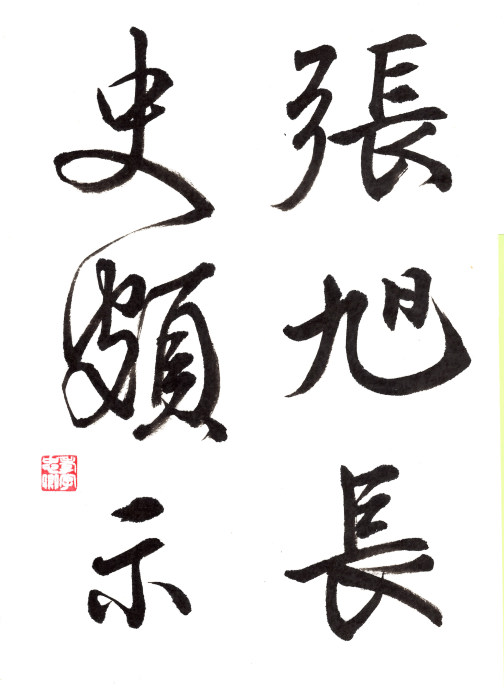 張旭長
史頗示